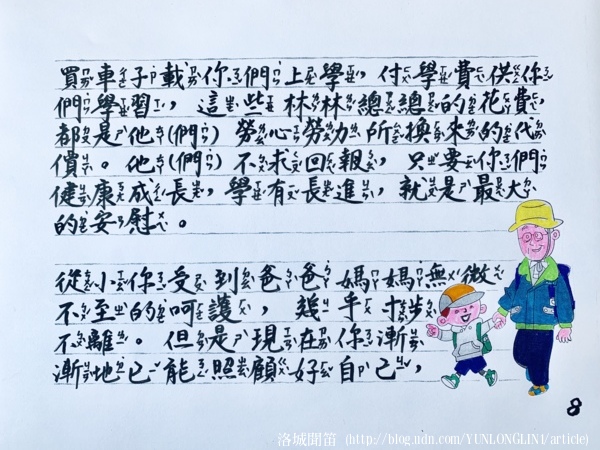 買車子載你們上學，付學費供你
們學習，這些林林總總的花費，
都是他(們)勞心勞力所換來的代
價。他(們)不求回報，只要你們
健康成長，學有長進，就是最大
的安慰。
從小你受到爸爸媽媽無微
不至的呵護，幾乎寸步
不離。但是現在你漸
漸地已能照顧好自己，
8
洛城聞笛 (http://blog.udn.com/YUNLONGLIN1/article)